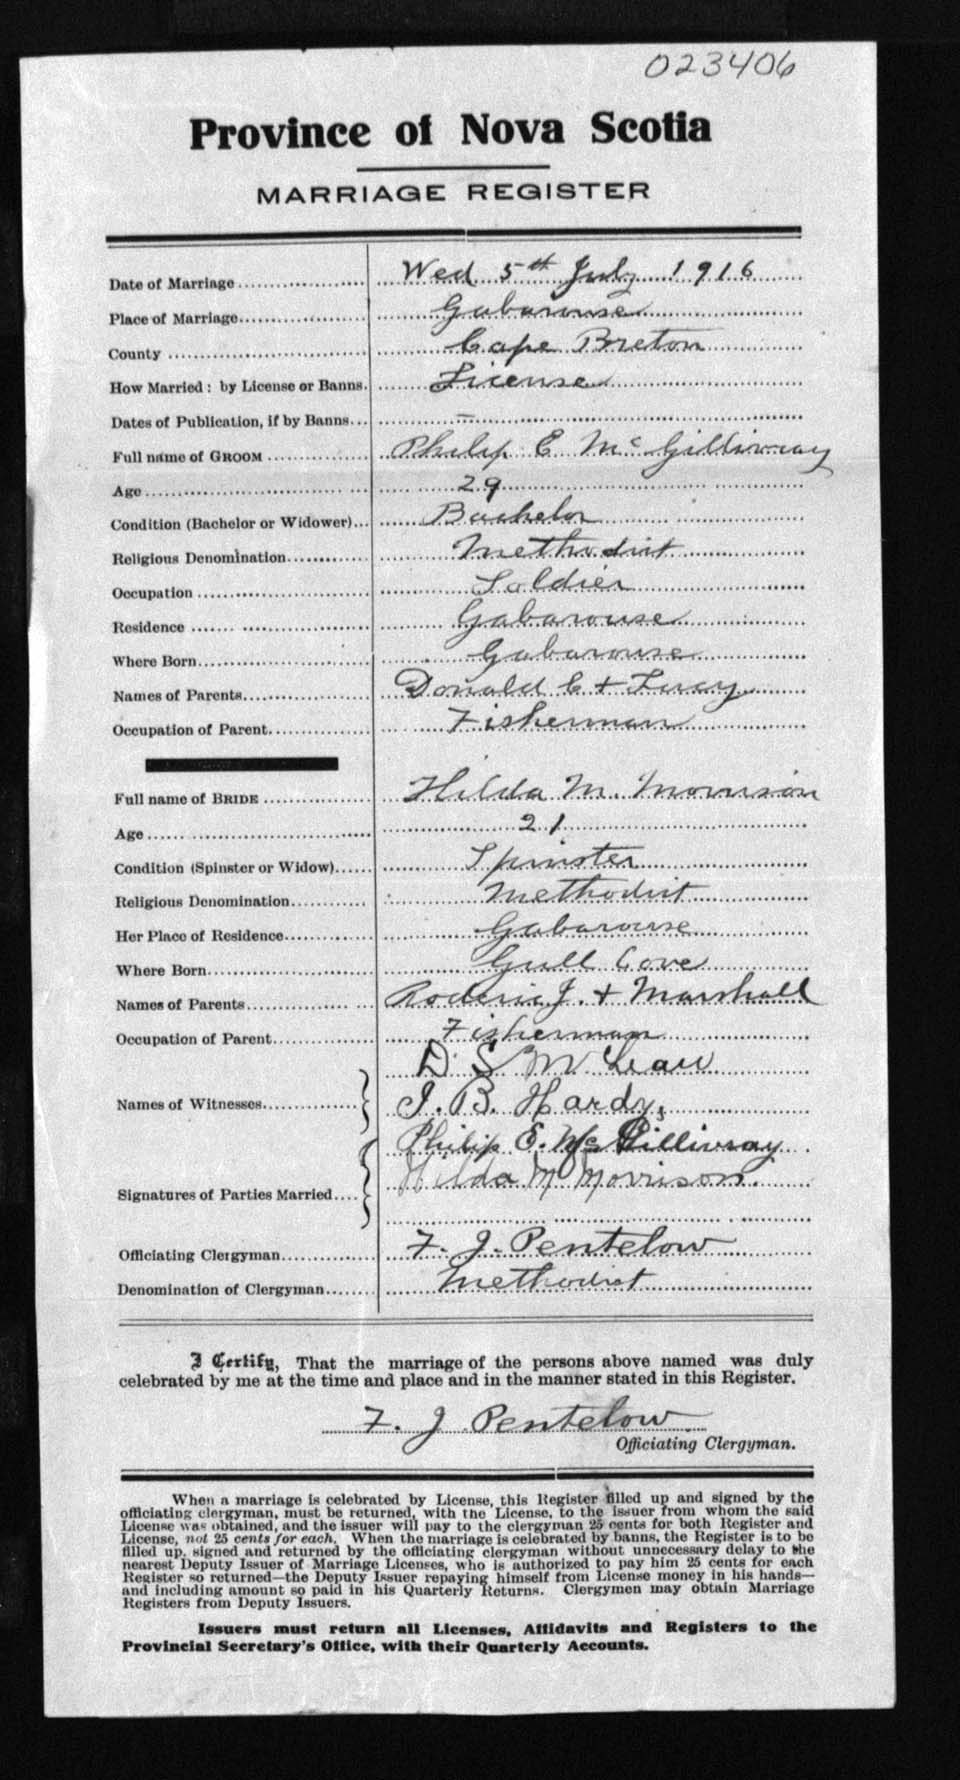 023406
Province of Nova Scotia
MARRIAGE REGISTER
Date of Marriage Wed 5th July 1916
Place of Marriage Gabarouse
County Cape Breton
How Married: by License or Banns. License
Dates of Publication, if by Banns —
Full name of GROOM Philip E McGillivray
Age 29
Condition (Bachelor or Widower) Bachelor
Religious Denomination Methodist
Occupation Soldier
Residence Gabarouse
Where Born Gabarouse
Names of Parents Donald C + Lucy
Occupation of Parent Fisherman
Full name of BRIDE Hilda M. Morrison
Age 21
Condition (Spinster or Widow) Spinster
Religious Denomination Methodist
Her Place of Residence Gabarouse
Where Born Gull Cove
Names of Parents Roderic J. + Marshall
Occupation of Parent Fisherman
D. S McLean
Names of Witnesses J. B. Hardy,
Philip E. McGillivray
Signatures of Parties Married Hilda M Morrison.
Officiating Clergyman F. J. Pentelow
Denomination of Clergyman Methodist
I Certify, That the marriage of the persons above named was duly
celebrated by me at the time and place and in the manner stated in this Register.
F. J Pentelow
Officiating Clergyman.
When a marriage is celebrated by License, this Register filled up and signed by the
officiating clergyman, must be returned, with the License, to the issuer from whom the said
License was obtained, and the issuer will pay to the clergyman 25 cents for both Register and
License, not 25 cents for each. When the marriage is celebrated by banns, the Register is to be
filled up, signed and returned by the officiating clergyman without unnecessary delay to the
nearest Deputy Issuer of Marriage Licenses, who is authorized to pay him 25 cents for each
Register so returned—the Deputy Issuer repaying himself from License money in his hands—
and including amount so paid in his Quarterly Returns. Clergymen may obtain Marriage
Registers from Deputy Issuers.
Issuers must return all Licenses, Affidavits and Registers to the
Provincial Secretary's Office, with their Quarterly Accounts.